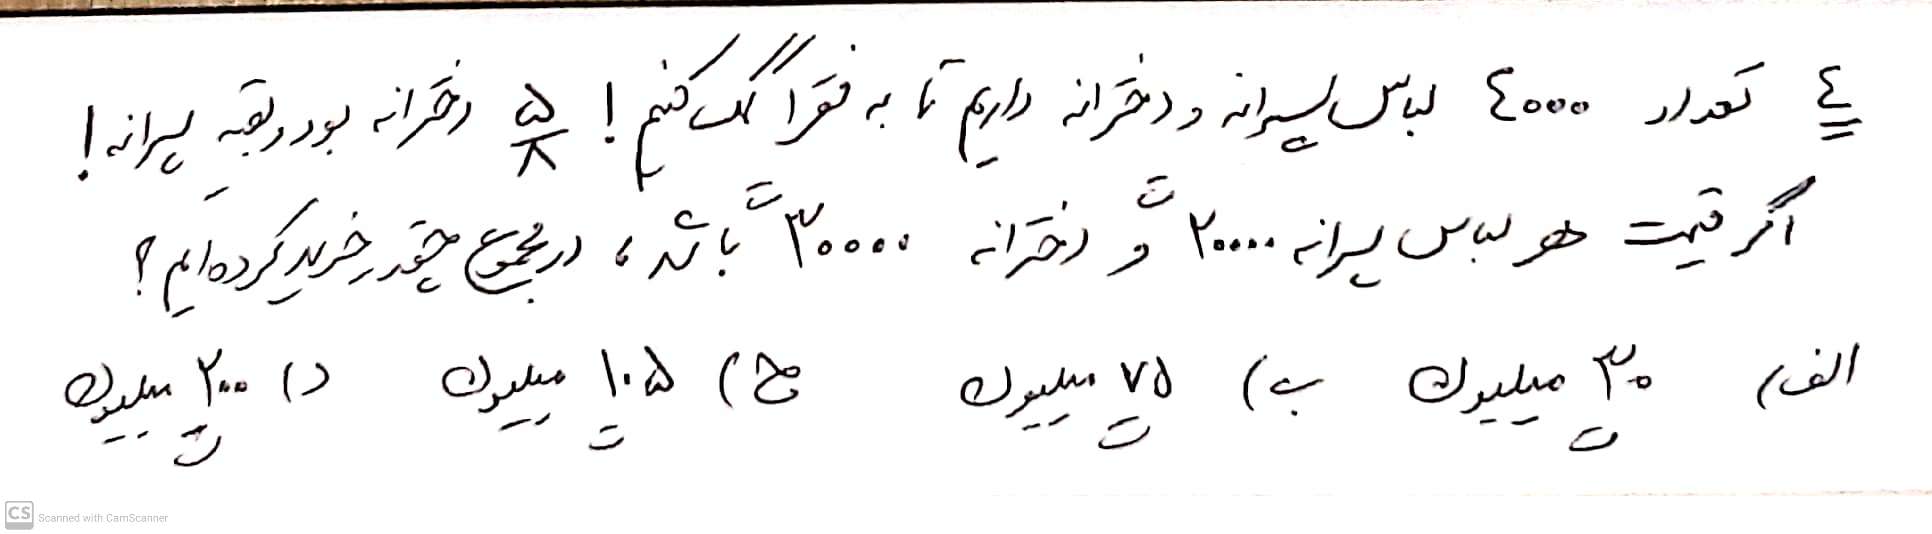 ٤ تعداد ٤۰۰۰ لباس پسرانه و دخترانه داریم تا به فقرا کمک کنیم! ۵/۸ دخترانه بود و بقیه پسرانه!
اگر قیمت هر لباس پسرانه ۲۰۰۰۰ ت و دخترانه ۳۰۰۰۰ ت باشد، در مجموع چقدر خرید کرده‌ایم؟
الف) ۳۰ میلیون ت ب) ۷۵ میلیون ت ج) ۱۰۵ میلیون ت د) ۲۰۰ میلیون ت
CS Scanned with CamScanner